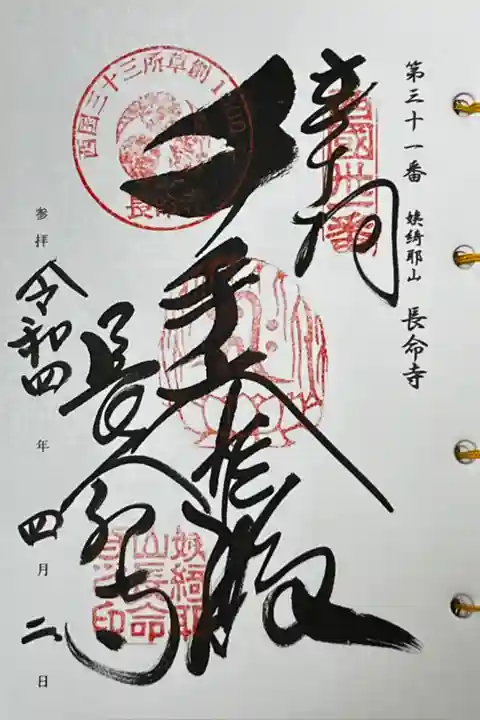 第三十一番 姨綺耶山 長命寺
奉拝
西国卅一番
西国三十三所草創1300
千手大悲殿
長命寺
姨綺耶山長命寺之印
参拝 令和四年 四月 二日